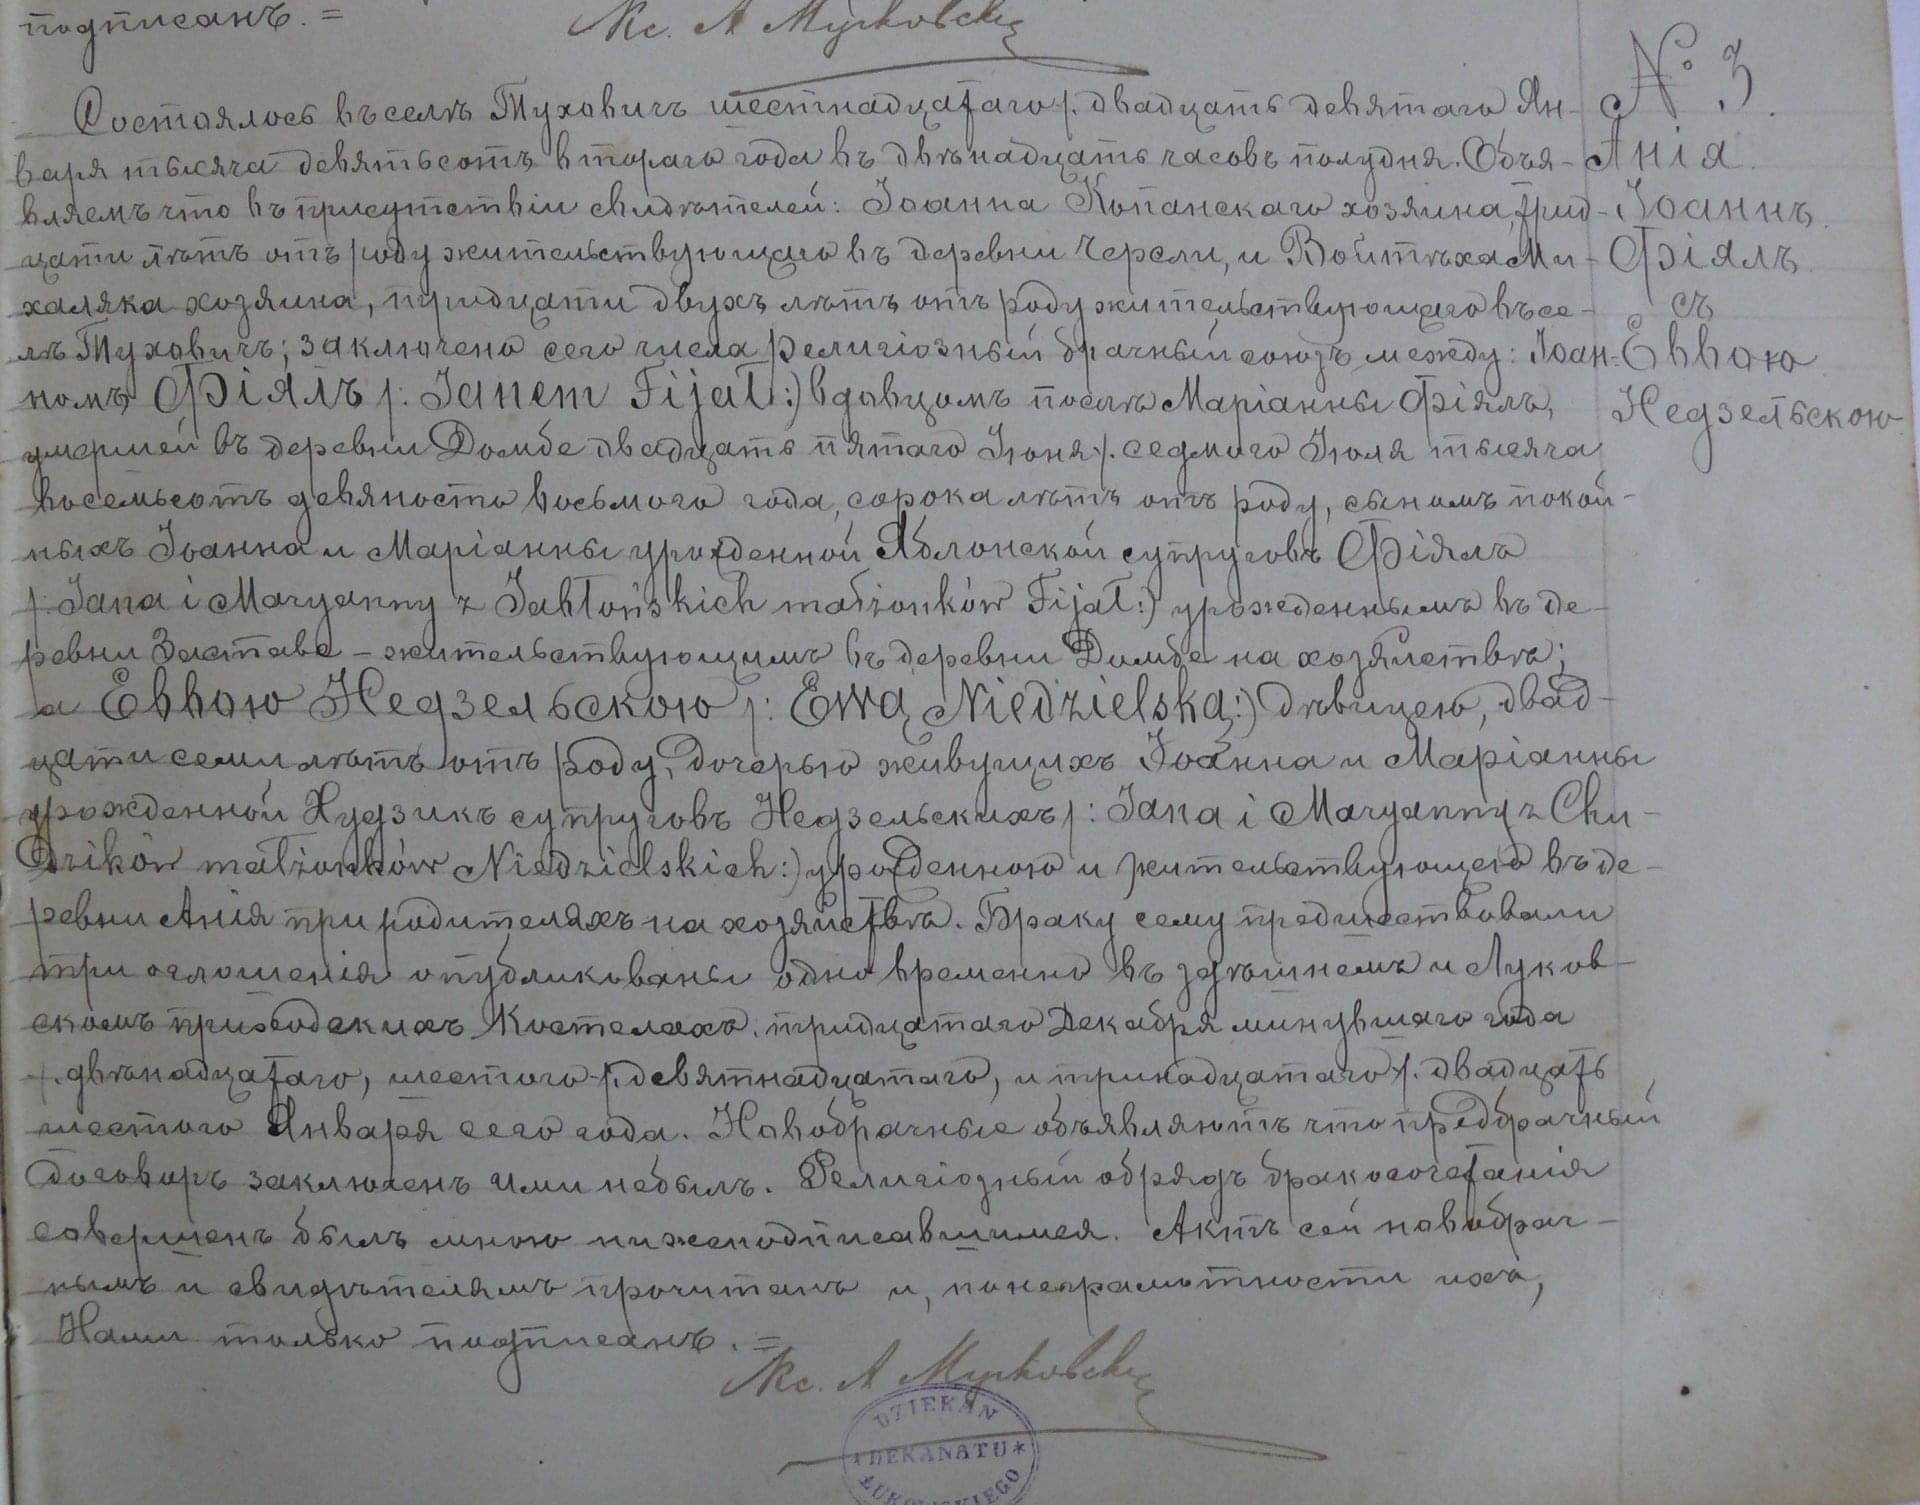 подписанъ. =
Кс. А
№ 3.
Состоялось въ селѣ Туховичъ шестнадцатаго /. двадцать девятаго Ян-
варя тысяча девятьсотъ втораго года въ двѣнадцать часовъ полудня. Объя-
вляемъ что въ присутствіи свидѣтелей: Іоанна Копанскаго хозяина, трид-
цати лѣтъ отъ роду жительствующаго въ деревни Чересли, и Войтѣха Ми-
халяка хозяина, тридцати двухъ лѣтъ отъ роду жительствующаго въ се-
лѣ Туховичъ; заключено сего числа религіозный брачный союзъ между: Іоан-
номъ Фіялъ /: Janem Fijał :) вдовцомъ послѣ Маріанны Фіялъ,
умершей въ деревни Домбе двадцать пятаго Іюня /. седмого Іюля тысяча
восемьсотъ девяносто восьмого года, сорока лѣтъ отъ роду, сыномъ покой-
ныхъ Іоанна и Маріанны урожденной Яблонской супруговъ Фіялъ
/: Jana i Maryanny z Jabłońskich małżonków Fijał :) урожденнымъ въ де-
ревни Заставе - жительствующимъ въ деревни Домбе на хозяйствѣ;
а Еввою Недзельскою /: Ewą Niedzielską :) дѣвицею, двад-
цати семи лѣтъ отъ роду, дочерью живущихъ Іоанна и Маріанны
урожденной Худзикъ супруговъ Недзельскихъ /: Jana i Maryanny z Chu-
dzików małżonków Niedzielskich :) урожденною и жительствующею въ де-
ревни Анія при родителяхъ на хозяйствѣ. Браку сему предшествовали
три оглошенія опубликованы одно временно въ здѣшнемъ и Луков-
скомъ приходскихъ Костелахъ: тридцатаго Декабря минувшаго года
/. двѣнадцатаго, шестого /. девятнадцатаго, и тринадцатаго /. двадцать
шестого Января сего года. Новобрачные объявляютъ что предбрачный
договоръ заключенъ ими небылъ. Религіозный обрядъ бракосочетанія
совершенъ былъ мною нижеподписавшимся. Актъ сей новобрач-
нымъ и свидѣтелямъ прочитанъ и, по неграмотности ихъ,
Нами только подписанъ. =
Кс. А
Анія
Іоаннъ
Фіялъ
съ
Еввою
Недзельскою
DZIEKAN
* DEKANATU *
ŁUKOWSKIEGO